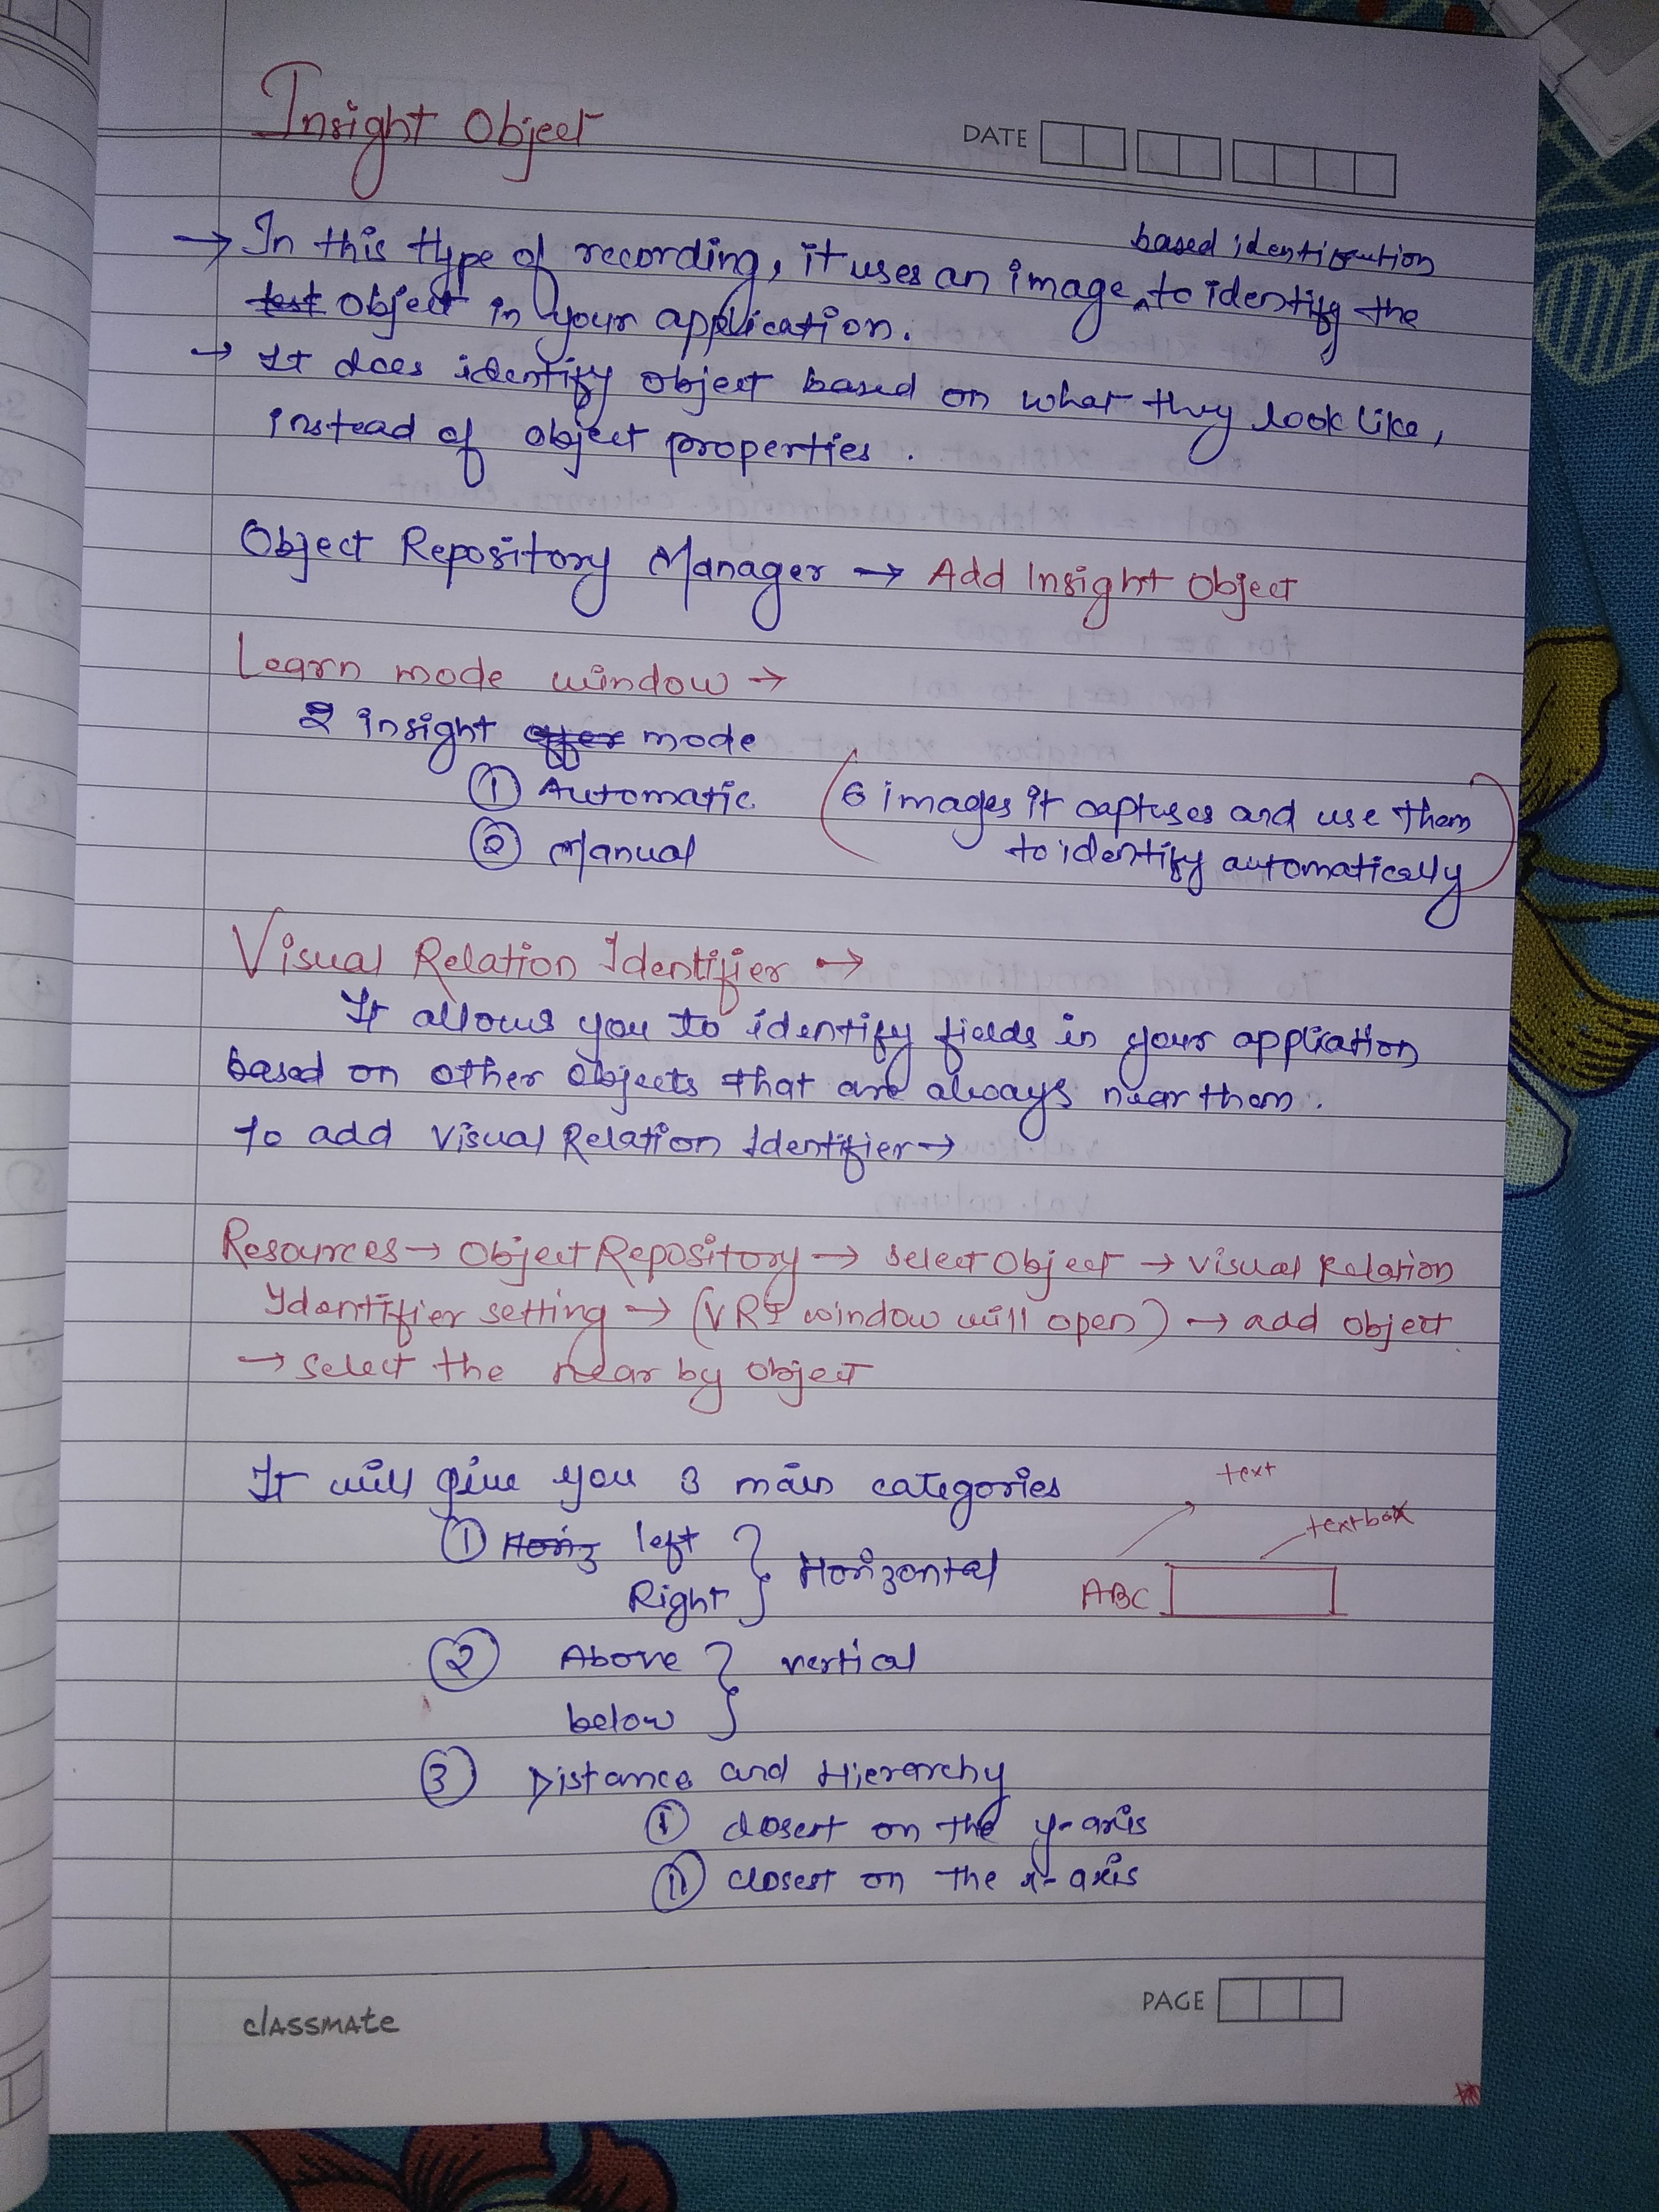 Insight Object
DATE
based identification
→ In this type of recording, it uses an image ^ to identify the
test object in your application.
→ It does identify object based on what they look like,
instead of object properties.
Object Repository Manager → Add Insight Object
Learn mode window →
2 insight offer mode
① Automatic
(6 images it captures and use them
② Manual
to identify automatically)
Visual Relation Identifier →
It allows you to identify fields in your application
based on other objects that are always near them.
To add Visual Relation Identifier →
Resources → Object Repository → select Object → visual Relation
Identifier setting → (VRI window will open) → add object
→ select the near by object
It will give you 3 main categories
text
① Horiz left
textbox
Right } Horizontal
ABC
② Above } vertical
below
③ Distance and Hierarchy
(i) closest on the y-axis
(ii) closest on the x-axis
classmate
PAGE